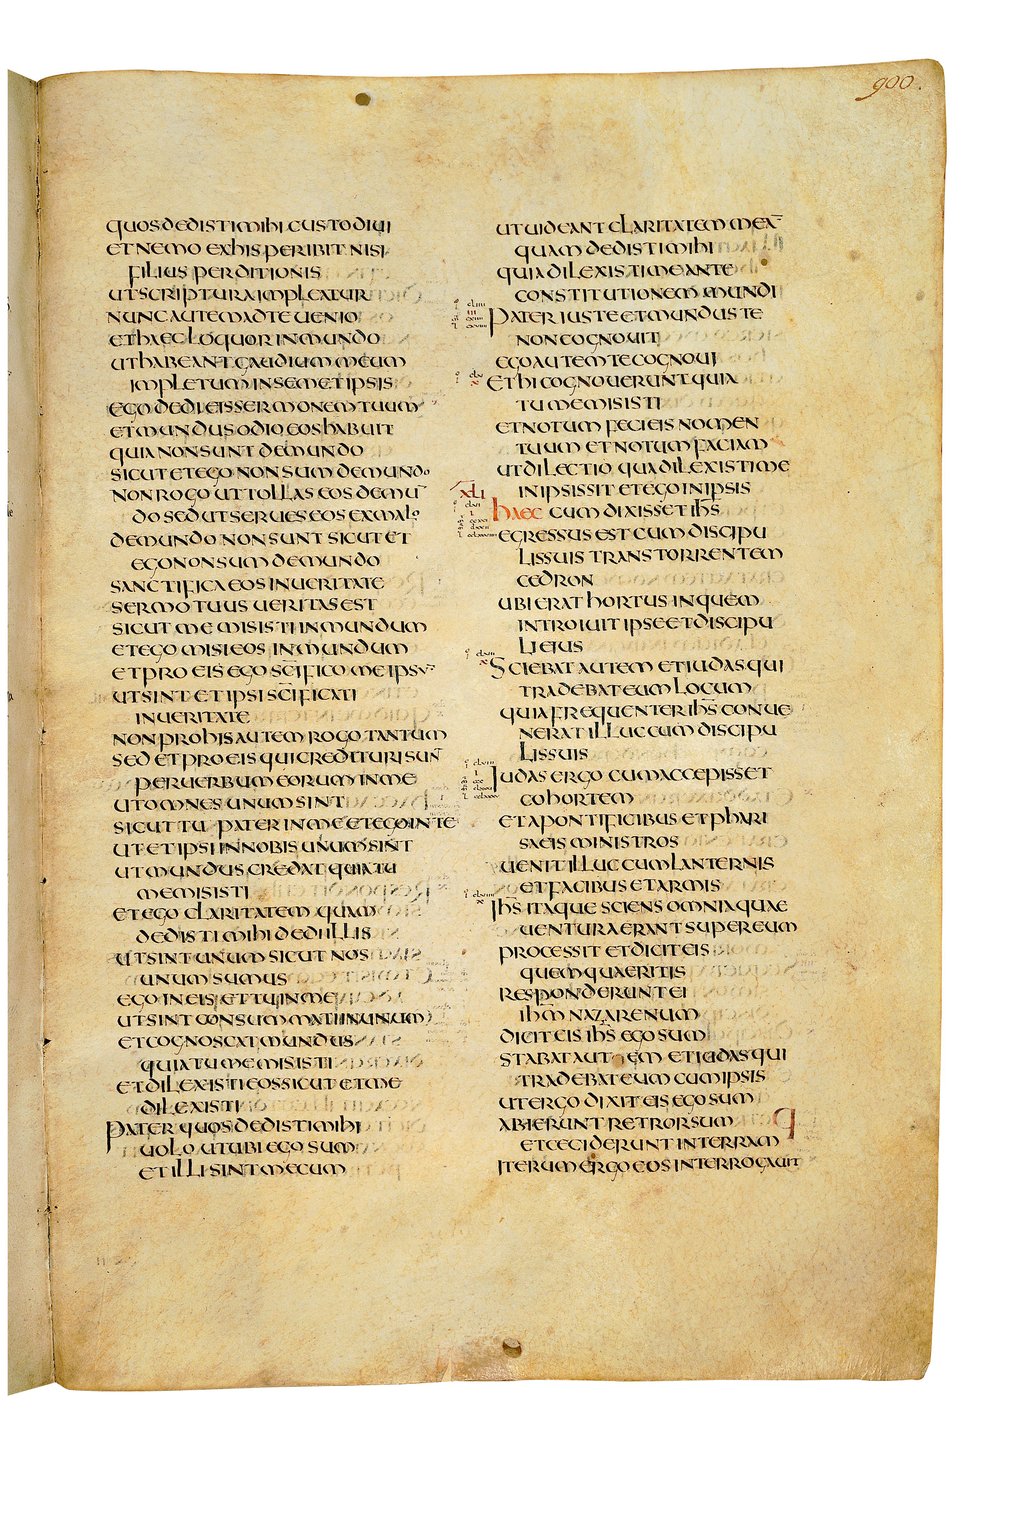 900.
quos dedisti mihi custodiui
et nemo ex his peribit nisi
filius perditionis
ut scriptura impleatur
nunc autem ad te uenio
et haec loquor in mundo
ut habeant gaudium meum
impletum in semetipsis
ego dedi eis sermonem tuum
et mundus odio eos habuit
quia non sunt de mundo
sicut et ego non sum de mundo
non rogo ut tollas eos de mū
do sed ut serues eos ex malo
de mundo non sunt sicut et
ego non sum de mundo
sanctifica eos in ueritate
sermo tuus ueritas est
sicut me misisti in mundum
et ego misi eos in mundum
et pro eis ego sc̄ifico me ipsū
ut sint et ipsi sc̄ificati
in ueritate
non pro his autem rogo tantum
sed et pro eis qui credituri sun̄
per uerbum eorum in me
ut omnes unum sint
sicut tu pater in me et ego in te
ut et ipsi in nobis unum sint
ut mundus credat quia tu
me misisti
et ego claritatem quam
dedisti mihi dedi illis
ut sint unum sicut nos
unum sumus
ego in eis et tu in me
ut sint consummati in unum
et cognoscat mundus
quia tu me misisti
et dilexisti eos sicut et me
dilexisti
Pater quos dedisti mihi
uolo ut ubi ego sum
et illi sint mecum
ut uideant claritatem meā
quam dedisti mihi
quia dilexisti me ante
constitutionem mundi
Pater iuste et mundus te
non cognouit
ego autem te cognoui
Et hi cognouerunt quia
tu me misisti
et notum feci eis nomen
tuum et notum faciam
ut dilectio qua dilexisti me
in ipsis sit et ego in ipsis
XLI
haec cum dixisset ih̄s
egressus est cum discipu
lis suis trans torrentem
cedron
ubi erat hortus in quem
introiuit ipse et discipu
li eius
Sciebat autem et iudas qui
tradebat eum locum
quia frequenter ih̄s conue
nerat illuc cum discipu
lis suis
Iudas ergo cum accepisset
cohortem
et a pontificibus et phari
saeis ministros
uenit illuc cum lanternis
et facibus et armis
Ih̄s itaque sciens omnia quae
uentura erant super eum
processit et dicit eis
quem quaeritis
responderunt ei
ih̄m nazarenum
dicit eis ih̄s ego sum
stabat autem et iudas qui
tradebat eum cum ipsis
ut ergo dixit eis ego sum
abierunt retrorsum
et ceciderunt in terram
iterum ergo eos interrogauit